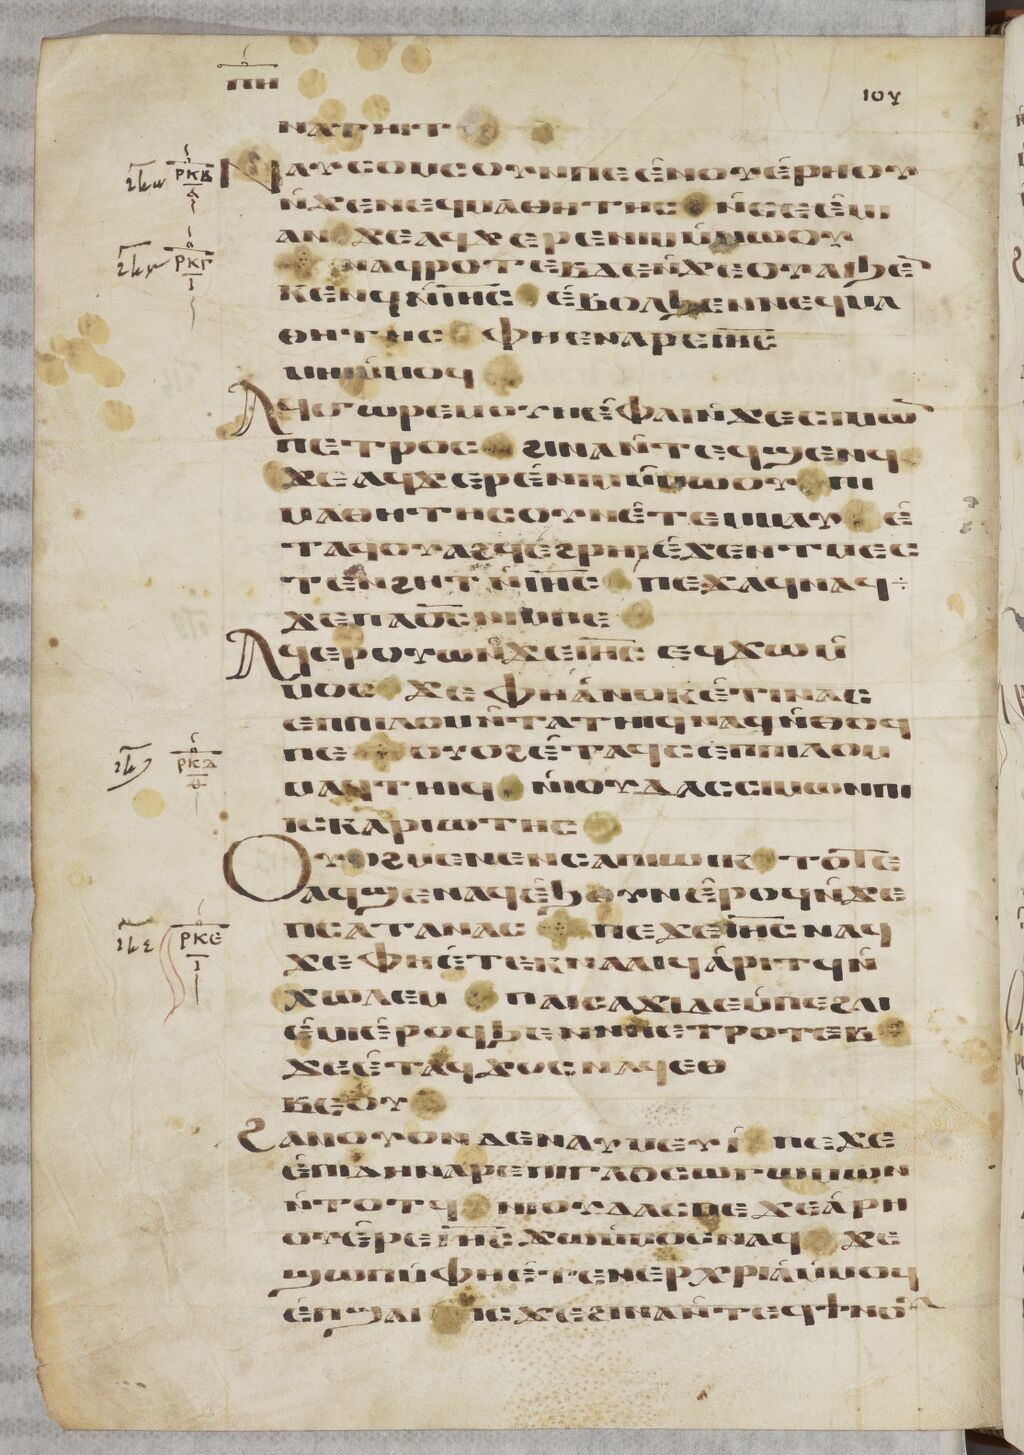 ⲡⲏ
ⲓⲟⲩ
ⲛⲁϥⲏⲓⲧ
ⲛⲁⲩⲥⲟⲙⲥ ⲟⲩⲛ ⲡⲉ ⲉ̀ⲛⲟⲩⲉ̀ⲣⲏⲟⲩ
ⲣⲕⲃ
ⲛ̀ϫⲉⲛⲉϥⲙⲁⲑⲏⲧⲏⲥ ⲛ̀ⲥⲉⲉ̀ⲙⲓ
ⲁⲛ ϫⲉⲁϥϫⲉⲣⲉⲛⲓⲙ ⲙ̀ⲙⲱⲟⲩ
ⲣⲕⲅ
ⲛⲁϥⲣⲟⲧⲉⲃ ⲇⲉ ⲛ̀ϫⲉⲟⲩⲁⲓ ϧⲉⲛ
ⲕⲉⲛϥ ⲛ̀ⲓⲏⲥ ⲉ̀ⲃⲟⲗϧⲉⲛⲛⲉϥⲙⲁ
ⲑⲏⲧⲏⲥ ⲫⲏⲉⲛⲁⲣⲉⲓⲏⲥ
ⲙⲏⲓ ⲙ̀ⲙⲟϥ
ⲁϥϭⲱⲣⲉⲙ ⲟⲩⲛ ⲉ̀ⲫⲁⲓ ⲛ̀ϫⲉⲥⲓⲙⲱⲛ
ⲡⲉⲧⲣⲟⲥ ϩⲓⲛⲁ ⲛ̀ⲧⲉϥϣⲉⲛϥ
ϫⲉⲁϥϫⲉⲣⲉ ⲛⲓⲙ ⲙ̀ⲙⲱⲟⲩ ⲡⲓ
ⲙⲁⲑⲏⲧⲏⲥ ⲟⲩⲛ ⲉ̀ⲧⲉⲙⲙⲁⲩ ⲉ̀
ⲧⲁϥⲟⲩⲁϩϥ ⲉ̀ϩⲣⲏⲓ ⲉ̀ϫⲉⲛⲧⲙⲉⲥ
ⲧⲉⲛϩⲏⲧ ⲛ̀ⲓⲏⲥ ⲡⲉϫⲁϥ ⲛⲁϥ
ϫⲉⲡⲁϭⲥ ⲛⲓⲙ ⲡⲉ
ⲁϥⲉⲣⲟⲩⲱ ⲛ̀ϫⲉⲓⲏⲥ ⲉϥϫⲱ ⲙ̀
ⲙⲟⲥ ϫⲉ ⲫⲏ ⲁ̀ⲛⲟⲕ ⲉ̀ϯⲛⲁⲥ
ⲉⲡⲡⲓⲗⲱⲙ ⲛ̀ⲧⲁⲧⲏⲓϥ ⲛⲁϥ ⲛ̀ⲑⲟϥ
ⲡⲉ ⲟⲩⲟϩ ⲉ̀ⲧⲁϥⲥⲉⲡ ⲡⲓⲗⲱⲙ
ⲣⲕⲇ
ⲙⲁϥⲧⲏⲓϥ ⲛ̀ⲓⲟⲩⲇⲁⲥ ⲥⲓⲙⲱⲛ ⲡⲓ
ⲓⲥⲕⲁⲣⲓⲱⲧⲏⲥ
ⲟⲩⲟϩ ⲙⲉⲛⲉⲛⲥⲁ ⲡⲓⲱⲓⲕ ⲧⲟⲧⲉ
ⲁϥϣⲉⲛⲁϥ ⲉ̀ϧⲟⲩⲛ ⲉ̀ⲣⲟϥ ⲛ̀ϫⲉ
ⲡⲥⲁⲧⲁⲛⲁⲥ ⲡⲉϫⲉⲓⲏⲥ ⲛⲁϥ
ⲣⲕⲉ
ϫⲉ ⲫⲏ ⲉ̀ⲧⲉⲕⲛⲁⲁⲓϥ ⲁ̀ⲣⲓⲧϥ ⲛ̀
ⲭⲱⲗⲉⲙ ⲡⲁⲓⲥⲁϫⲓ ⲇⲉ ⲙ̀ⲡⲉϩⲗⲓ
ⲉ̀ⲙⲓ ⲉ̀ⲣⲟϥ ϧⲉⲛ ⲛⲏⲉⲧⲣⲟⲧⲉⲃ
ϫⲉ ⲉ̀ⲧⲁϥϫⲟⲥ ⲛⲁϥ ⲉⲑ
ⲃⲉⲟⲩ
ϩⲁⲛⲟⲩⲟⲛ ⲇⲉ ⲛⲁⲩⲙⲉⲩⲓ̀ ⲡⲉ ϫⲉ
ⲉ̀ⲡⲓⲇⲏ ⲛⲁⲣⲉⲡⲓⲅⲗⲟⲥⲱⲅⲱⲙⲱⲛ
ⲛ̀ⲧⲟⲧϥ ⲛ̀ⲓⲟⲩⲇⲁⲥ ⲡⲉ ϫⲉⲁ̀ⲣⲏ
ⲟⲩ ⲉ̀ⲣⲉⲓⲏⲥ ϫⲱ ⲙ̀ⲙⲟⲥ ⲛⲁϥ ϫⲉ
ϣⲱⲡ ⲙ̀ⲫⲏ ⲉ̀ⲧⲉⲛⲉⲣⲭⲣⲓⲁ ⲙ̀ⲙⲟϥ
ⲉ̀ⲡϣⲁⲓ ⲓⲥϫⲉ ϩⲓⲛⲁ ⲛ̀ⲧⲉϥϯ ⲛ̀ⲟⲩ